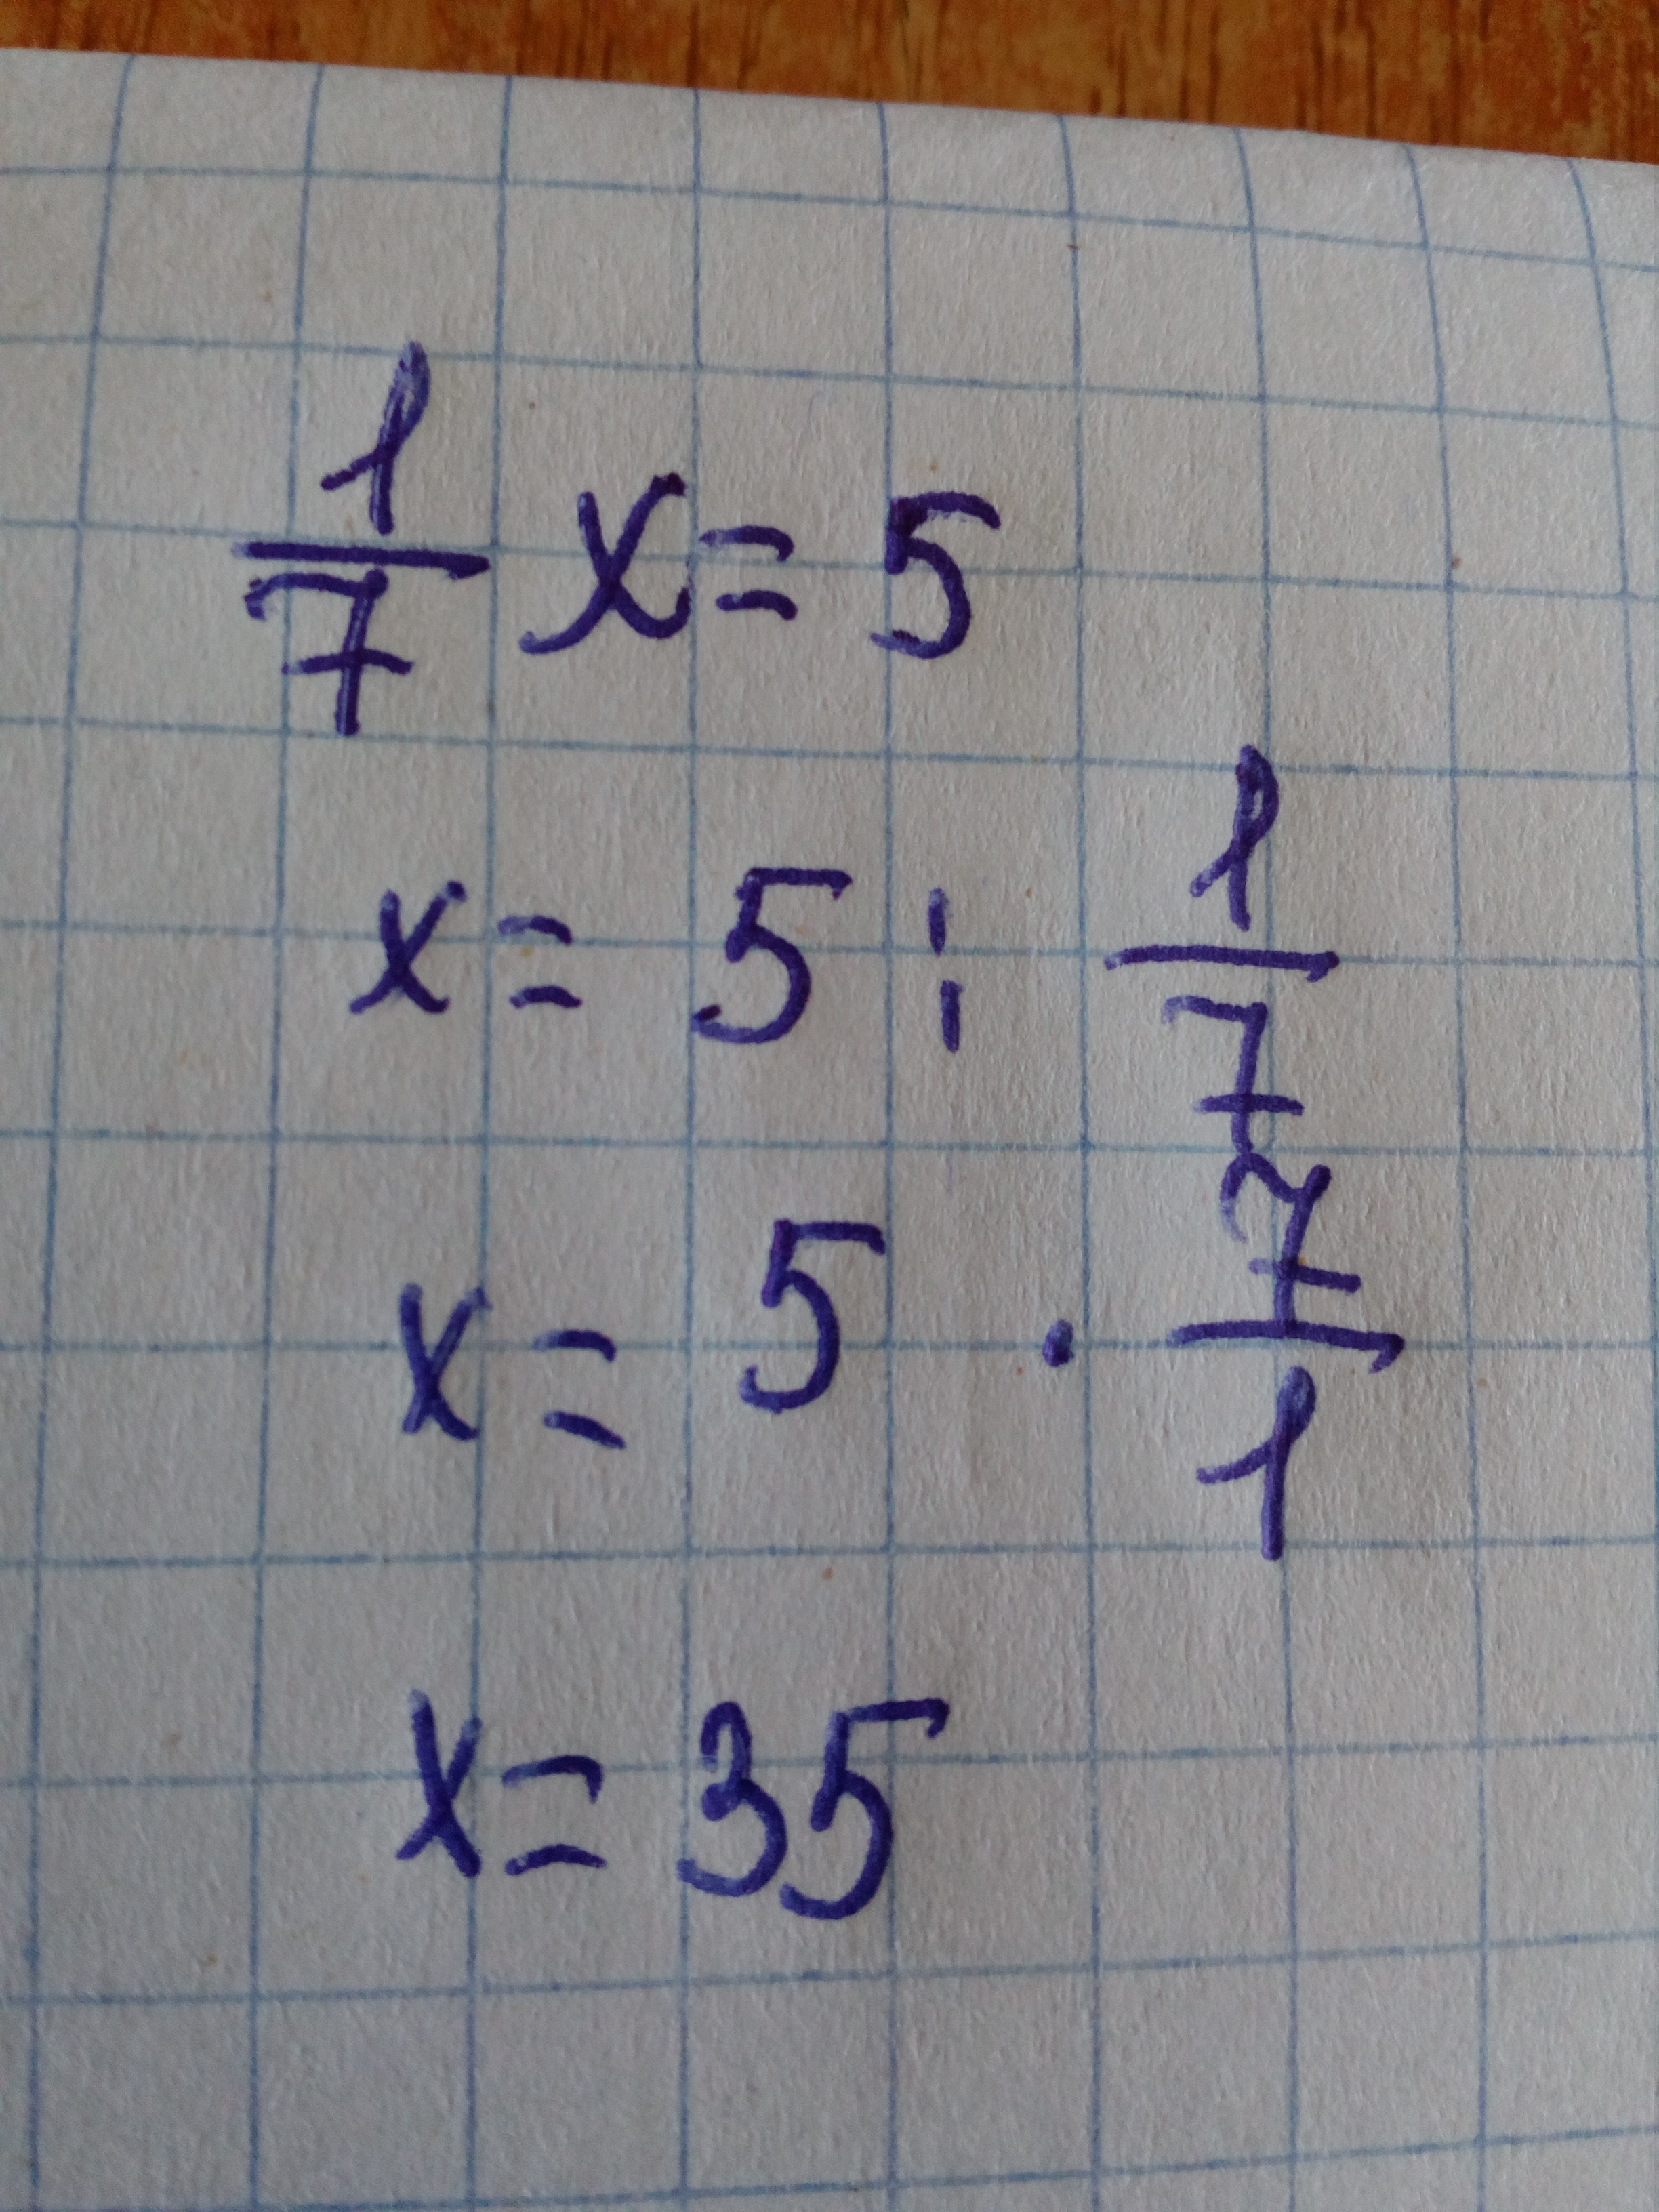 1/7 x = 5
x = 5 : 1/7
x = 5 · 7/1
x = 35